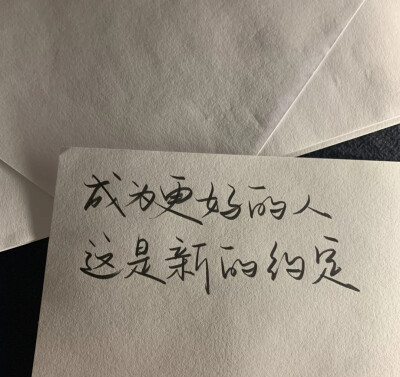 成为更好的人
这是新的约定